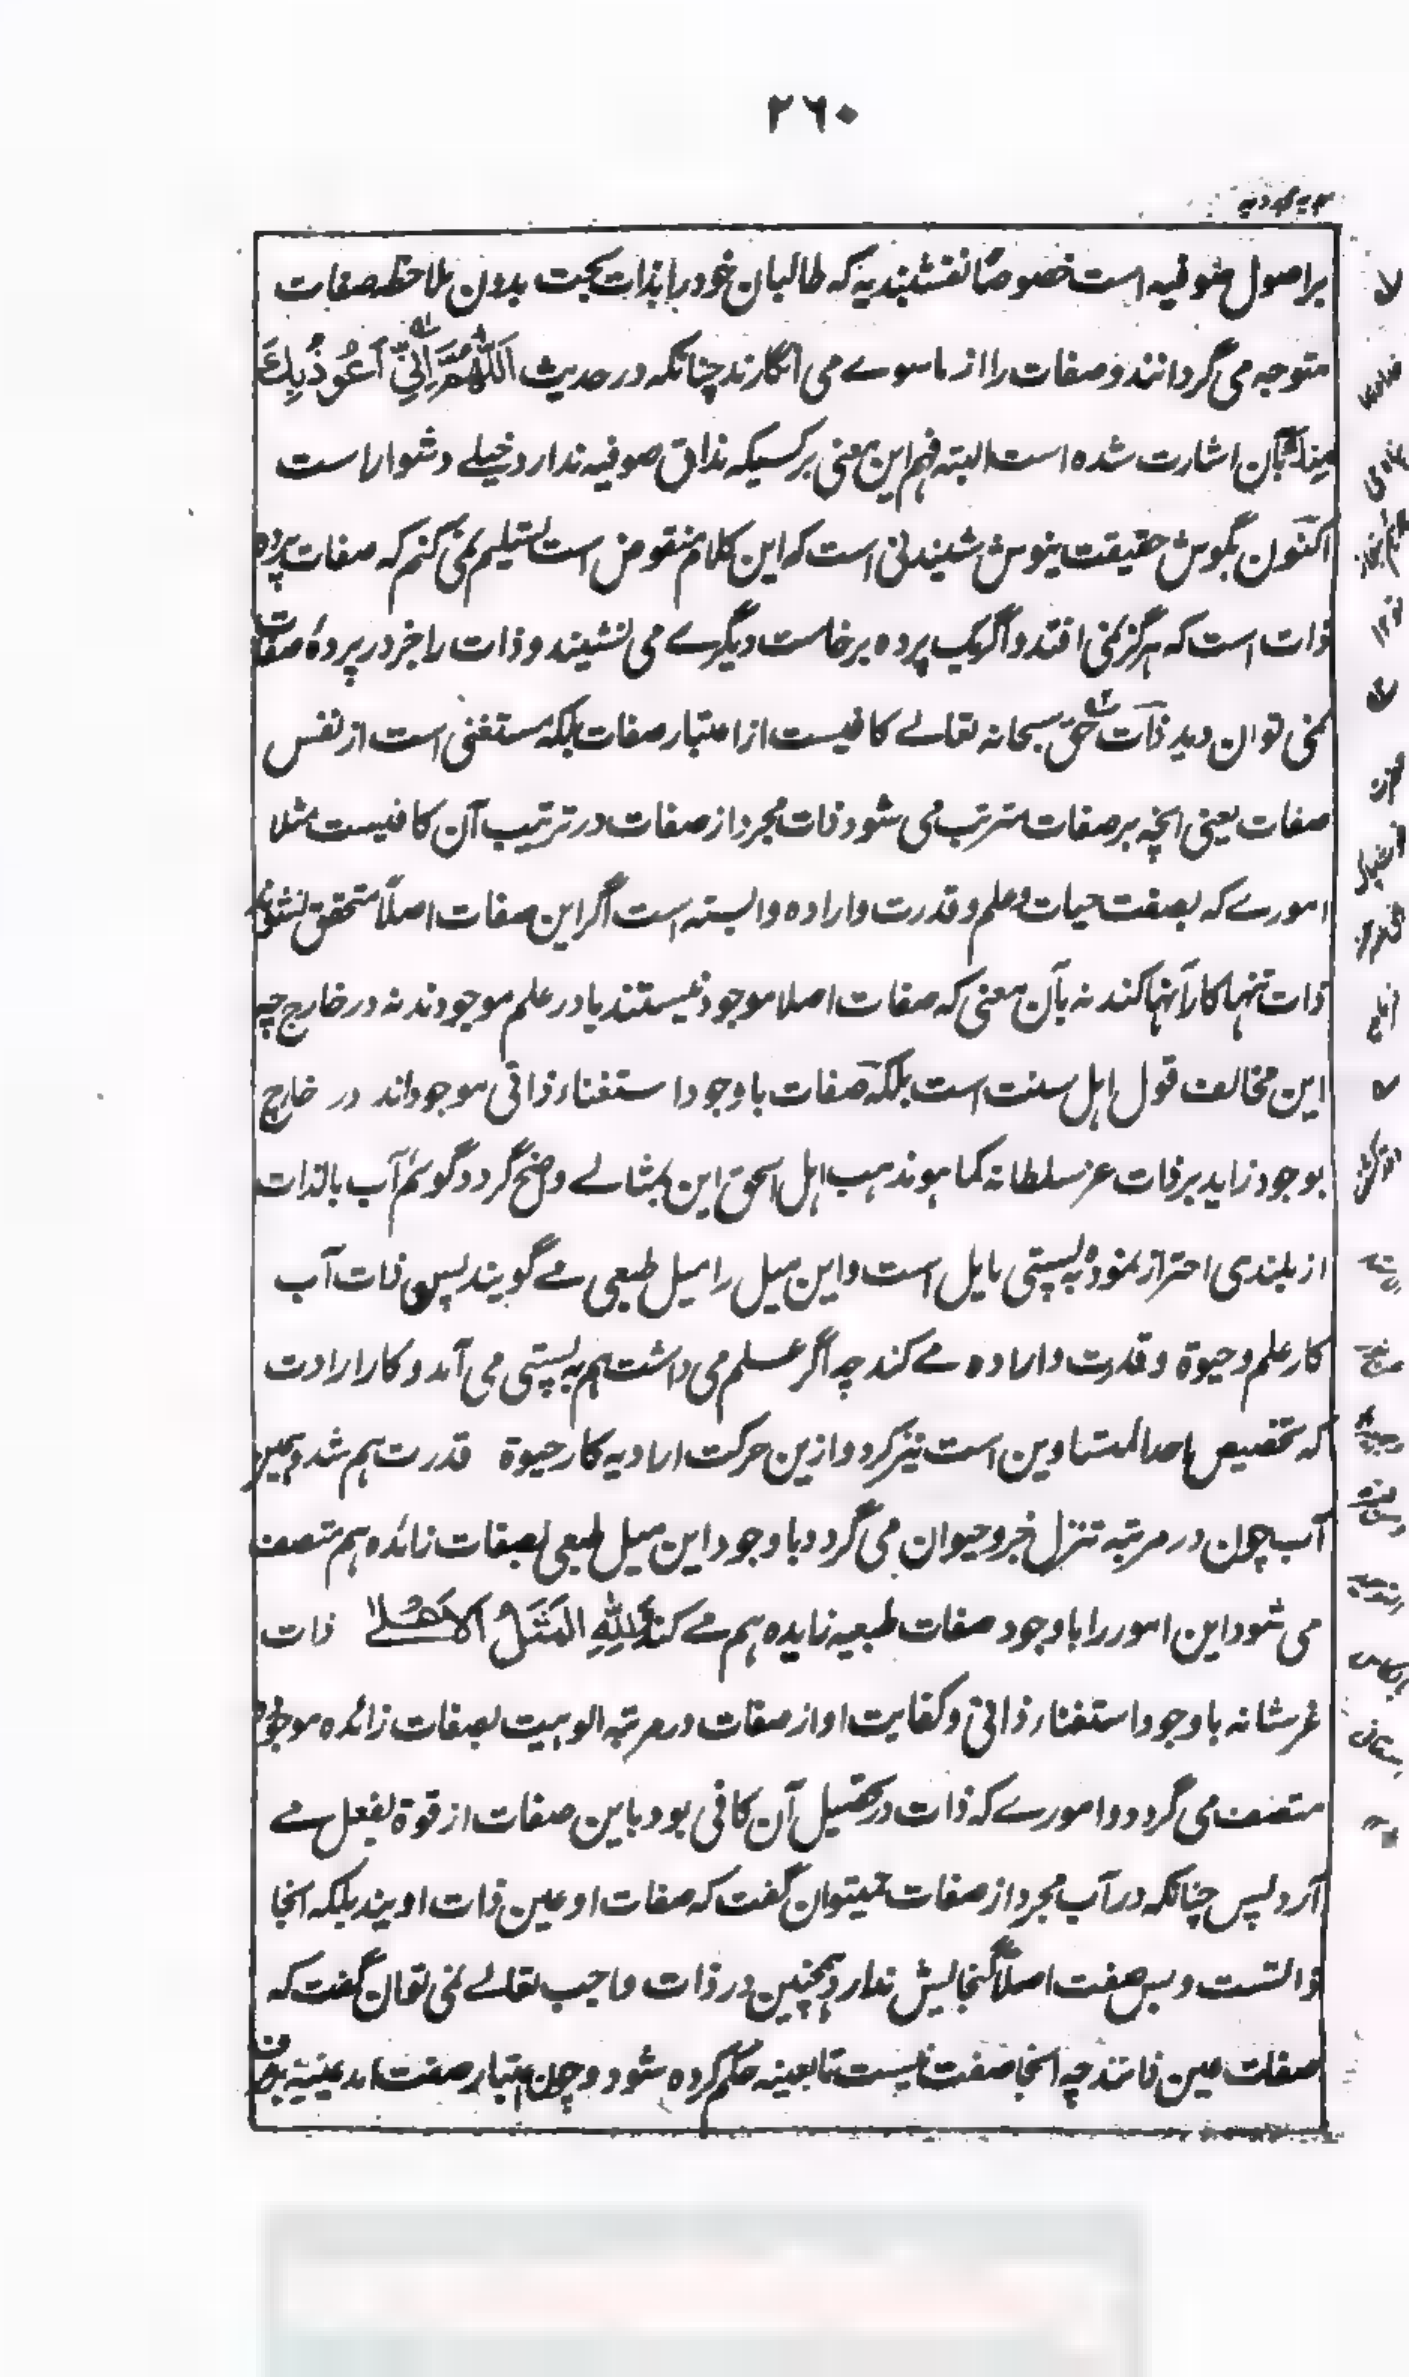 ۲۶۰
بر اصول صوفیه است خصوصًا نقشبندیه که طالبان خود را بذات بحت بدون ملاحظه صفات
متوجه می گردانند و صفات را از ماسوے می انگارند چنانکه در حدیث اَللّٰهُمَّ اِنِّیْ اَعُوْذُ بِكَ
مِنْكَ بآن اشارت شده است البته فهم این معنی بر کسیکه مذاق صوفیه ندارد خیلے دشوار است
اکنون بگوش حقیقت نیوش شنیدنی است که این کلام منقوض است تسلیم نمی کنم که صفات پرده
ذات است که هرگز نمی افتد و اگر یک پرده برخاست دیگرے می نشیند و ذات را جز در پردهٔ صفات
نمی توان دید ذات حق سبحانه تعالے کافیست از اعتبار صفات بلکه مستغنی است از نفس
صفات یعنی انچه بر صفات مترتب می شود ذات مجرد از صفات در ترتیب آن کافیست مثلا
امورے که بصفت حیات و علم و قدرت و اراده وابسته است اگر این صفات اصلاً متحقق نشوند
ذات تنها کار آنها کند نه بآن معنی که صفات اصلا موجود نیستند یا در علم موجودند نه در خارج چه
این مخالف قول اهل سنت است بلکه صفات باوجود استغناء ذاتی موجوداند در خارج
بوجود زاید بر ذات عز سلطانه کما هو مذهب اهل الحق این بمثالے واضح گردد گویم آب بالذات
از بلندی احتراز نموده به پستی مایل است و این میل را میل طبعی مے گویند پس ذات آب
کار علم و حیوة و قدرت و اراده مے کند چه اگر علم می داشت هم به پستی می آمد و کار ارادت
که تخصیص احد المتساوین است نیز کرد و ازین حرکت ارادیه کار حیوة قدرت هم شد و همین
آب چون در مرتبه تنزل جزو حیوان می گردد باوجود این میل طبعی بصفات زائده هم متصف
می شود این امور را باوجود صفات طبعیه زایده هم مے کند وَلِلّٰهِ الْمَثَلُ الْاَعْلٰے ذات
عز شانه باوجود استغناء ذاتی و کفایت او از صفات در مرتبه الوهیت بصفات زائده موجوده
متصف می گردد و امورے که ذات در تحصیل آن کافی بود باین صفات از قوة بفعل مے
آرد پس چنانکه در آب مجرد از صفات نمیتوان گفت که صفات او عین ذات اویند بلکه انجا
ذاتست و بس صفت اصلاً گنجایش ندارد همچنین در ذات واجب تعالے نمی توان گفت که
صفات عین ذاتند چه انجا صفت نیست تا بعینه حکم کرده شود و چون اعتبار صفت آمد عینیة